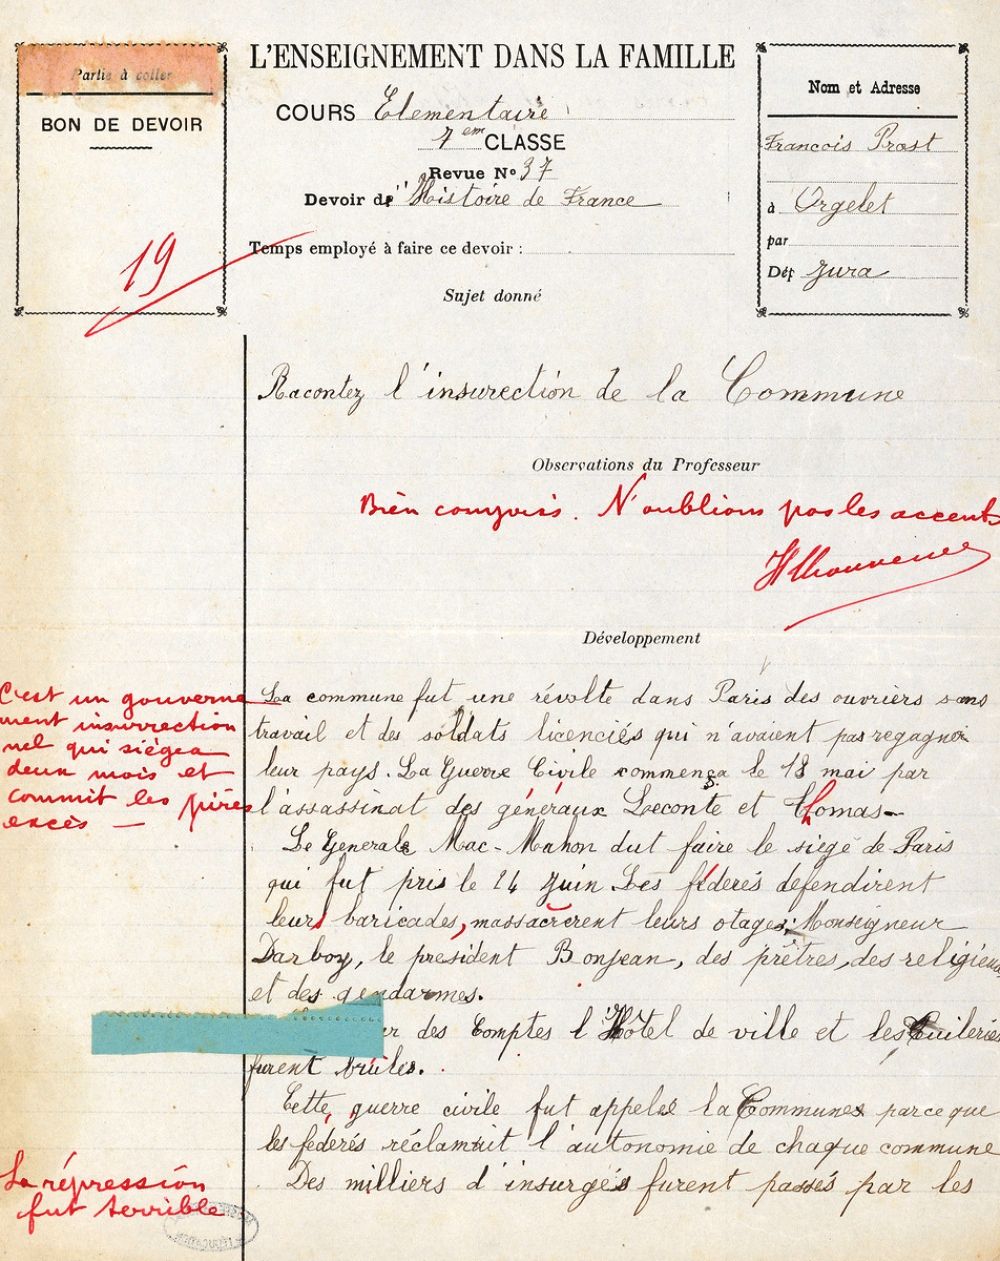 Partie à coller
BON DE DEVOIR
19
L'ENSEIGNEMENT DANS LA FAMILLE
COURS Elementaire
7em CLASSE
Revue No 37
Devoir d' Histoire de France
Temps employé à faire ce devoir :
Sujet donné
Nom et Adresse
Francois Prost
à Orgelet
par
Dép Jura
Racontez l'insurection de la Commune
Observations du Professeur
Bien compris. N'oublions pas les accents
Développement
C'est un gouverne
ment insurrection
nel qui siégea
deux mois et
commit les pires
excès —
La commune fut une révolte dans Paris des ouvriers sans
travail et des soldats licenciés qui n'avaient pas regagner
leur pays. La Guerre Civile commença le 18 mai par
l'assassinat des généraux Leconte et Thomas-
Le Generale Mac-Mahon dut faire le siège de Paris
qui fut pris le 24 Juin Les féderés defendirent
leurs baricades, massacrerent leurs otages: Monseigneur
Darboy, le president Bonjean, des prêtres, des religieux
et des gendarmes.
des Comptes l'Hôtel de ville et les Tuileries
furent brûles.
Cette guerre civile fut appelee la Commune parce que
les fédérés réclamait l'autonomie de chaque commune
Des milliers d'insurgés furent passés par les
La répression
fut terrible